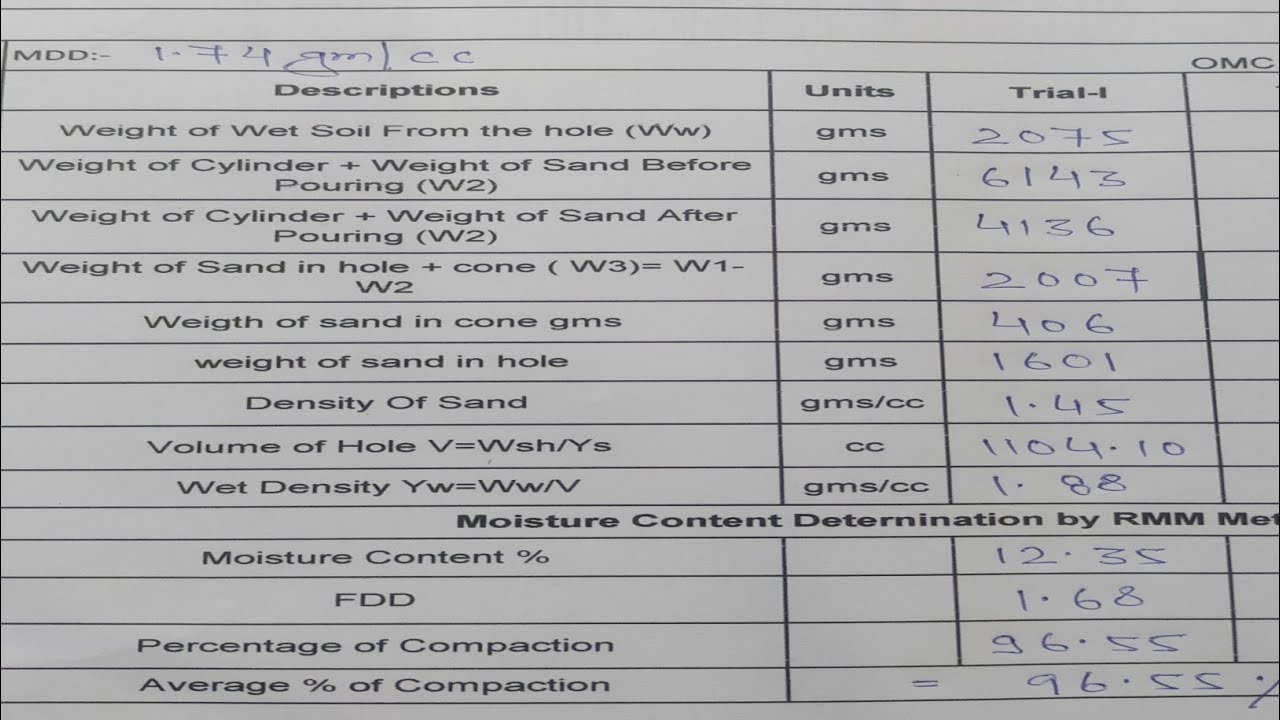 MDD:- 1.74 gm/cc
OMC
Descriptions Units Trial-I
Weight of Wet Soil From the hole (Ww) gms 2075
Weight of Cylinder + Weight of Sand Before
Pouring (W2) gms 6143
Weight of Cylinder + Weight of Sand After
Pouring (W2) gms 4136
Weight of Sand in hole + cone ( W3)= W1-
W2 gms 2007
Weigth of sand in cone gms gms 406
weight of sand in hole gms 1601
Density Of Sand gms/cc 1.45
Volume of Hole V=Wsh/Ys cc 1104.10
Wet Density Yw=Ww/V gms/cc 1.88
Moisture Content Deternination by RMM Met
Moisture Content % 12.35
FDD 1.68
Percentage of Compaction 96.55
Average % of Compaction = 96.55 %